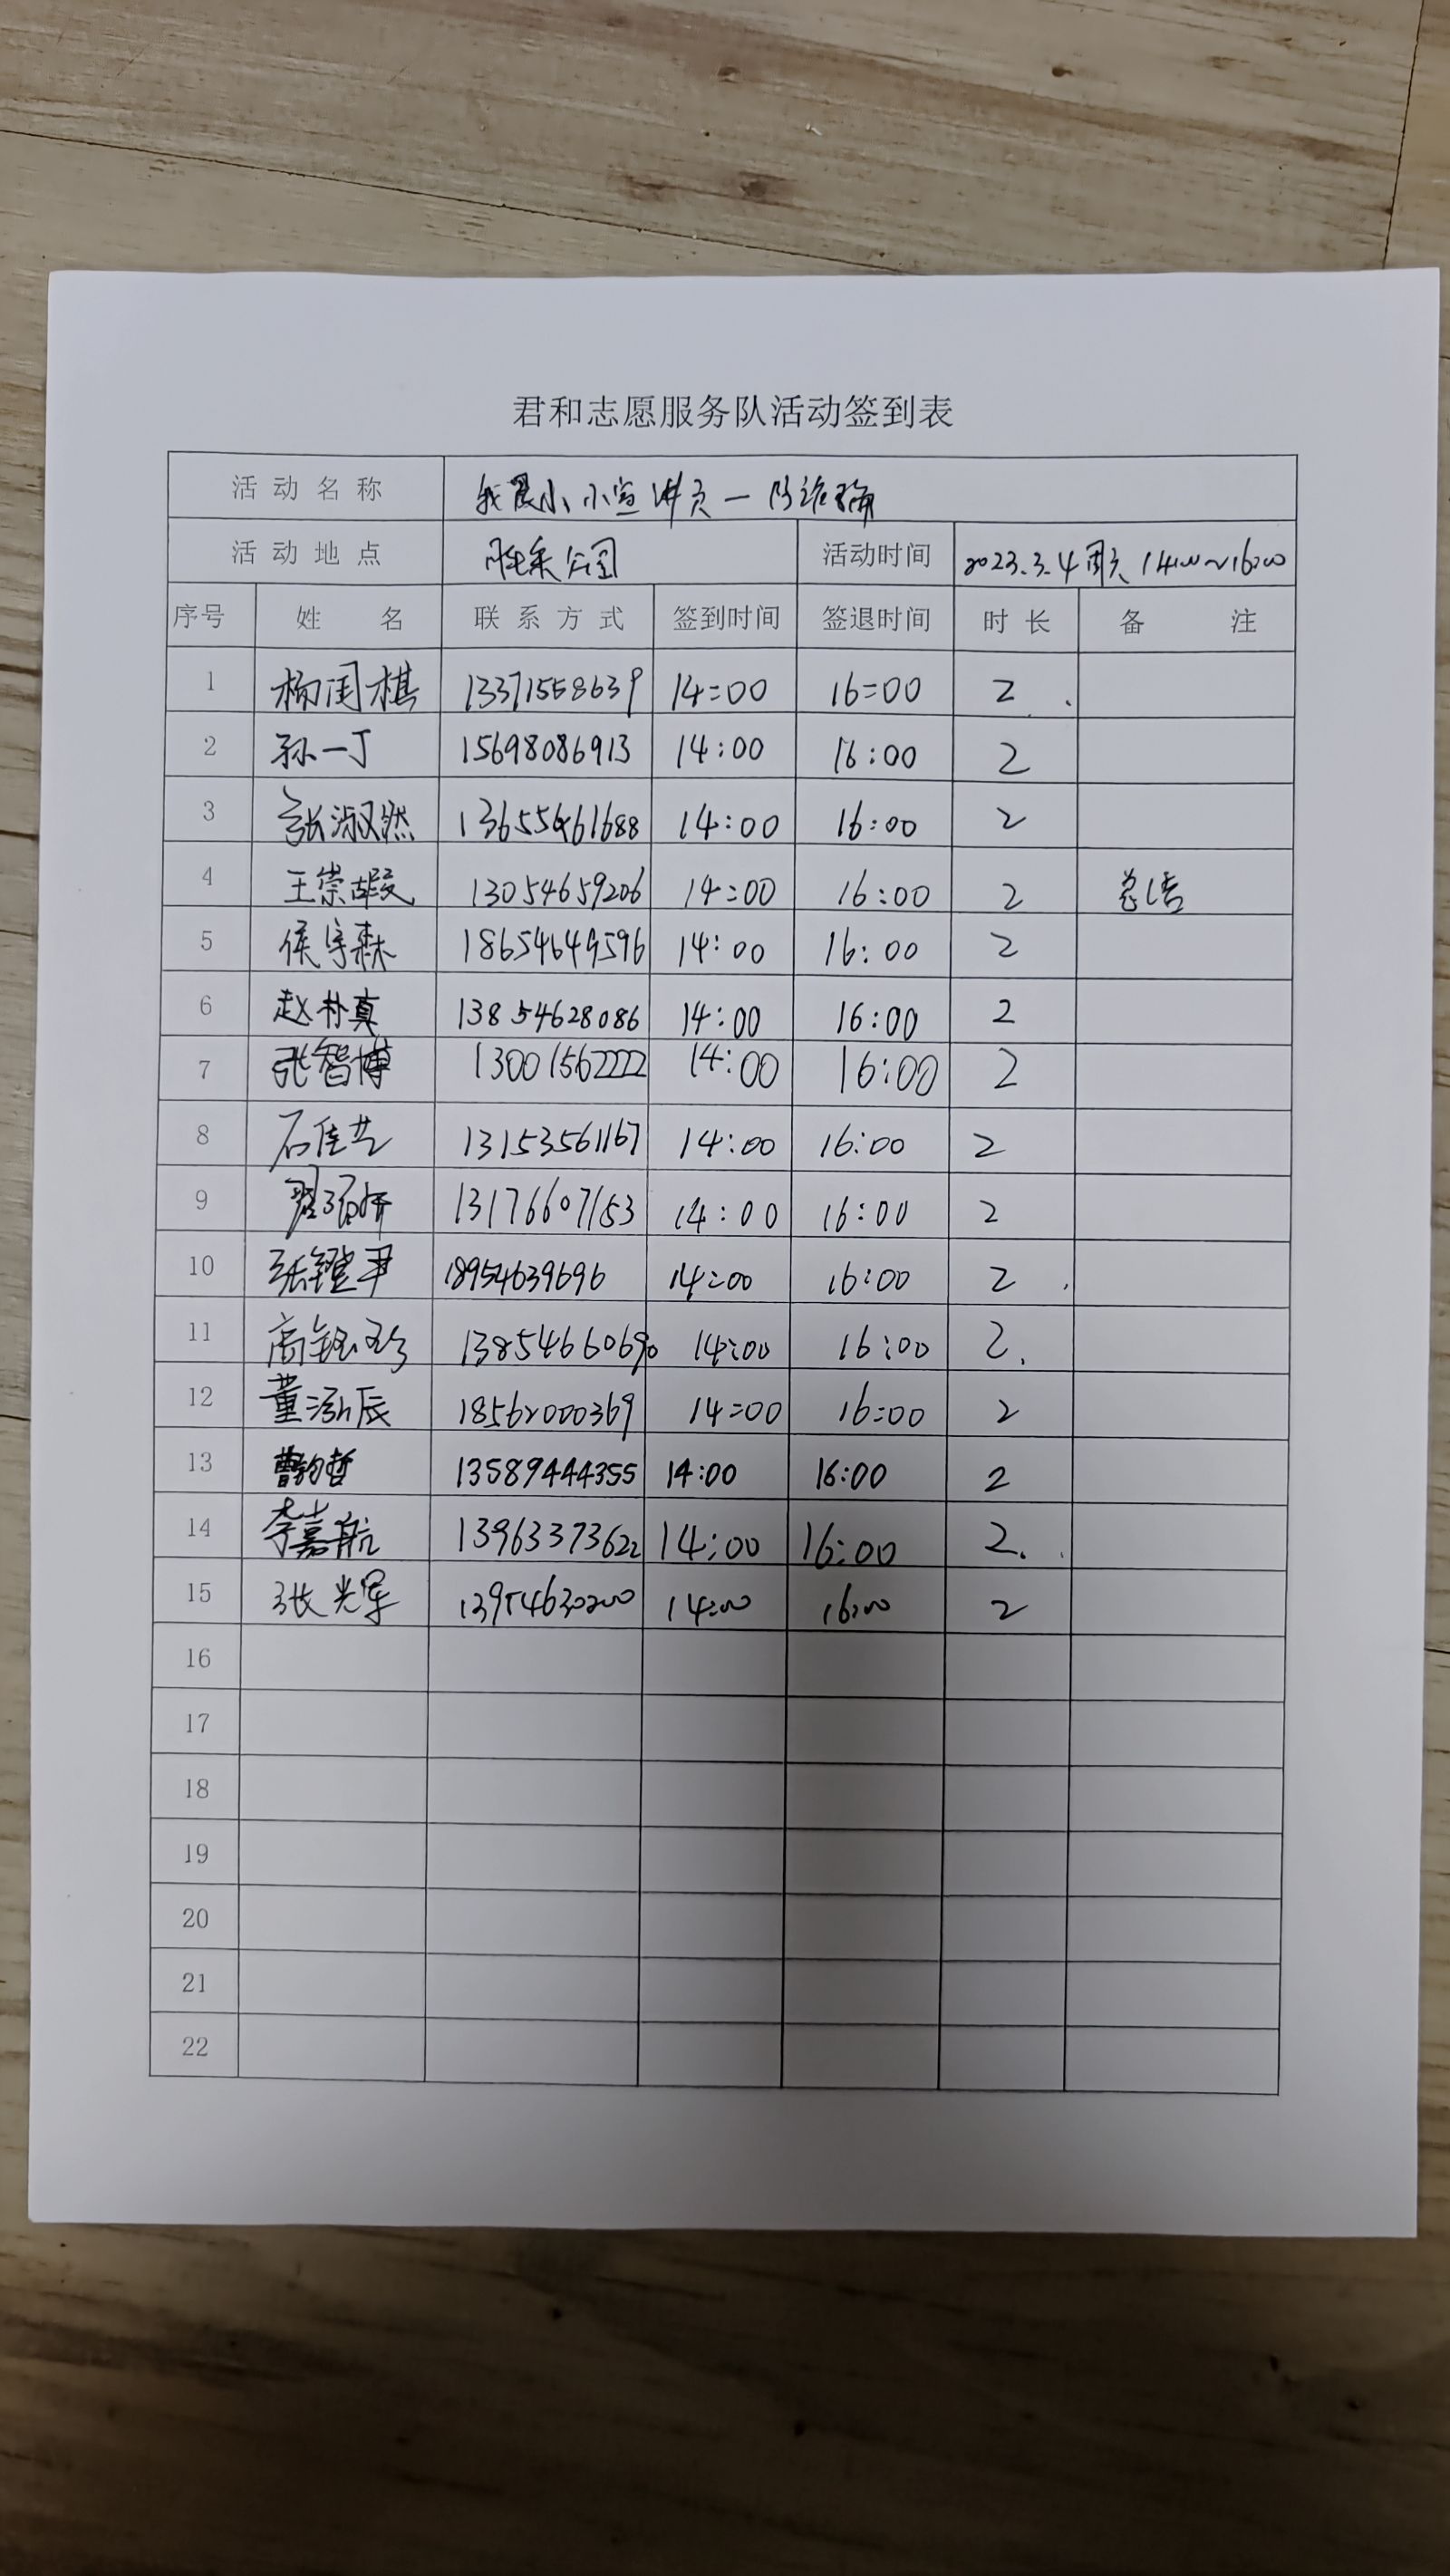 君和志愿服务队活动签到表
活动名称 我是小小宣讲员一
活动地点 公园 活动时间 2023.3.4周六 14:00~16:00
序号 姓名 联系方式 签到时间 签退时间 时长 备注
1 杨闰棋 13371558639 14:00 16:00 2
2 孙一丁 15698086913 14:00 16:00 2
3 张淑然 14:00 16:00 2
4 王崇嘏 13054659206 14:00 16:00 2
5 侯宇森 18654649596 14:00 16:00 2
6 赵朴真 13854628086 14:00 16:00 2
7 张智博 13001562222 14:00 16:00 2
8 石佳艺 13153561167 14:00 16:00 2
9 13176607153 14:00 16:00 2
10 张镫尹 18954639696 14:00 16:00 2
11 高钰珍 13854660690 14:00 16:00 2
12 董泓辰 18562000369 14:00 16:00 2
13 曹钧哲 13589444355 14:00 16:00 2
14 李嘉航 13963373622 14:00 16:00 2
15 张光军 13954630200 14:00 16:00 2
16
17
18
19
20
21
22